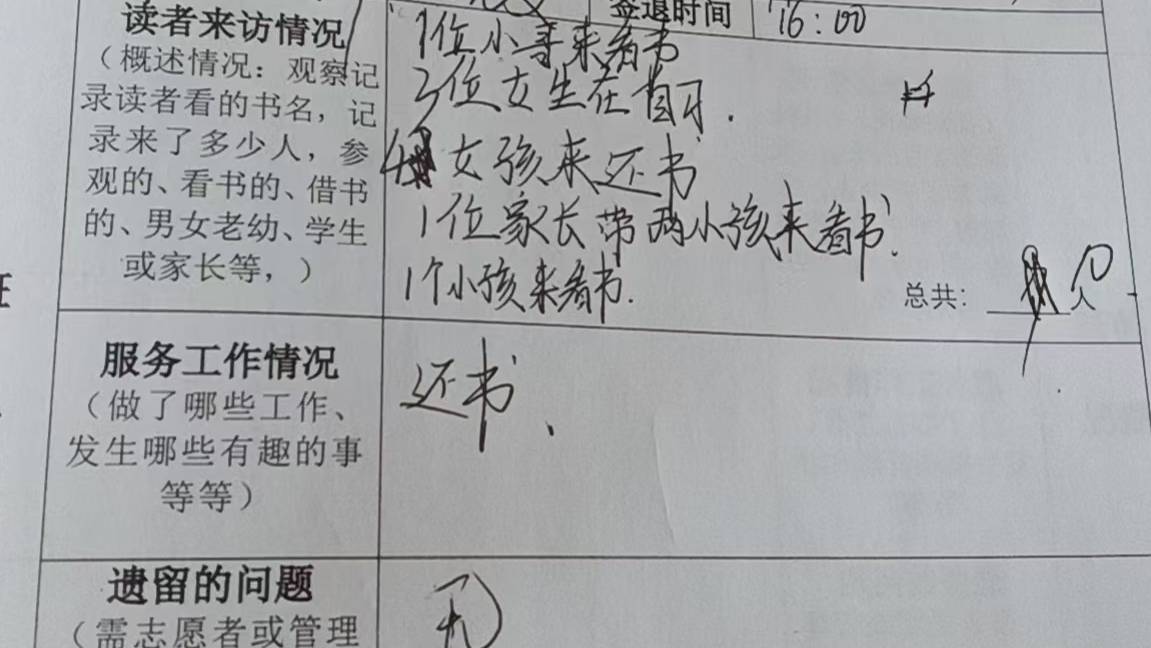 签退时间 16:00
读者来访情况
（概述情况：观察记
录读者看的书名，记
录来了多少人，参
观的、看书的、借书
的、男女老幼、学生
或家长等，）
1位小寻来看书
3位女生在自习.
女孩来还书
1位家长带两小孩来看书.
1个小孩来看书.
总共： 人
服务工作情况
（做了哪些工作、
发生哪些有趣的事
等等）
还书、
遗留的问题
（需志愿者或管理
无